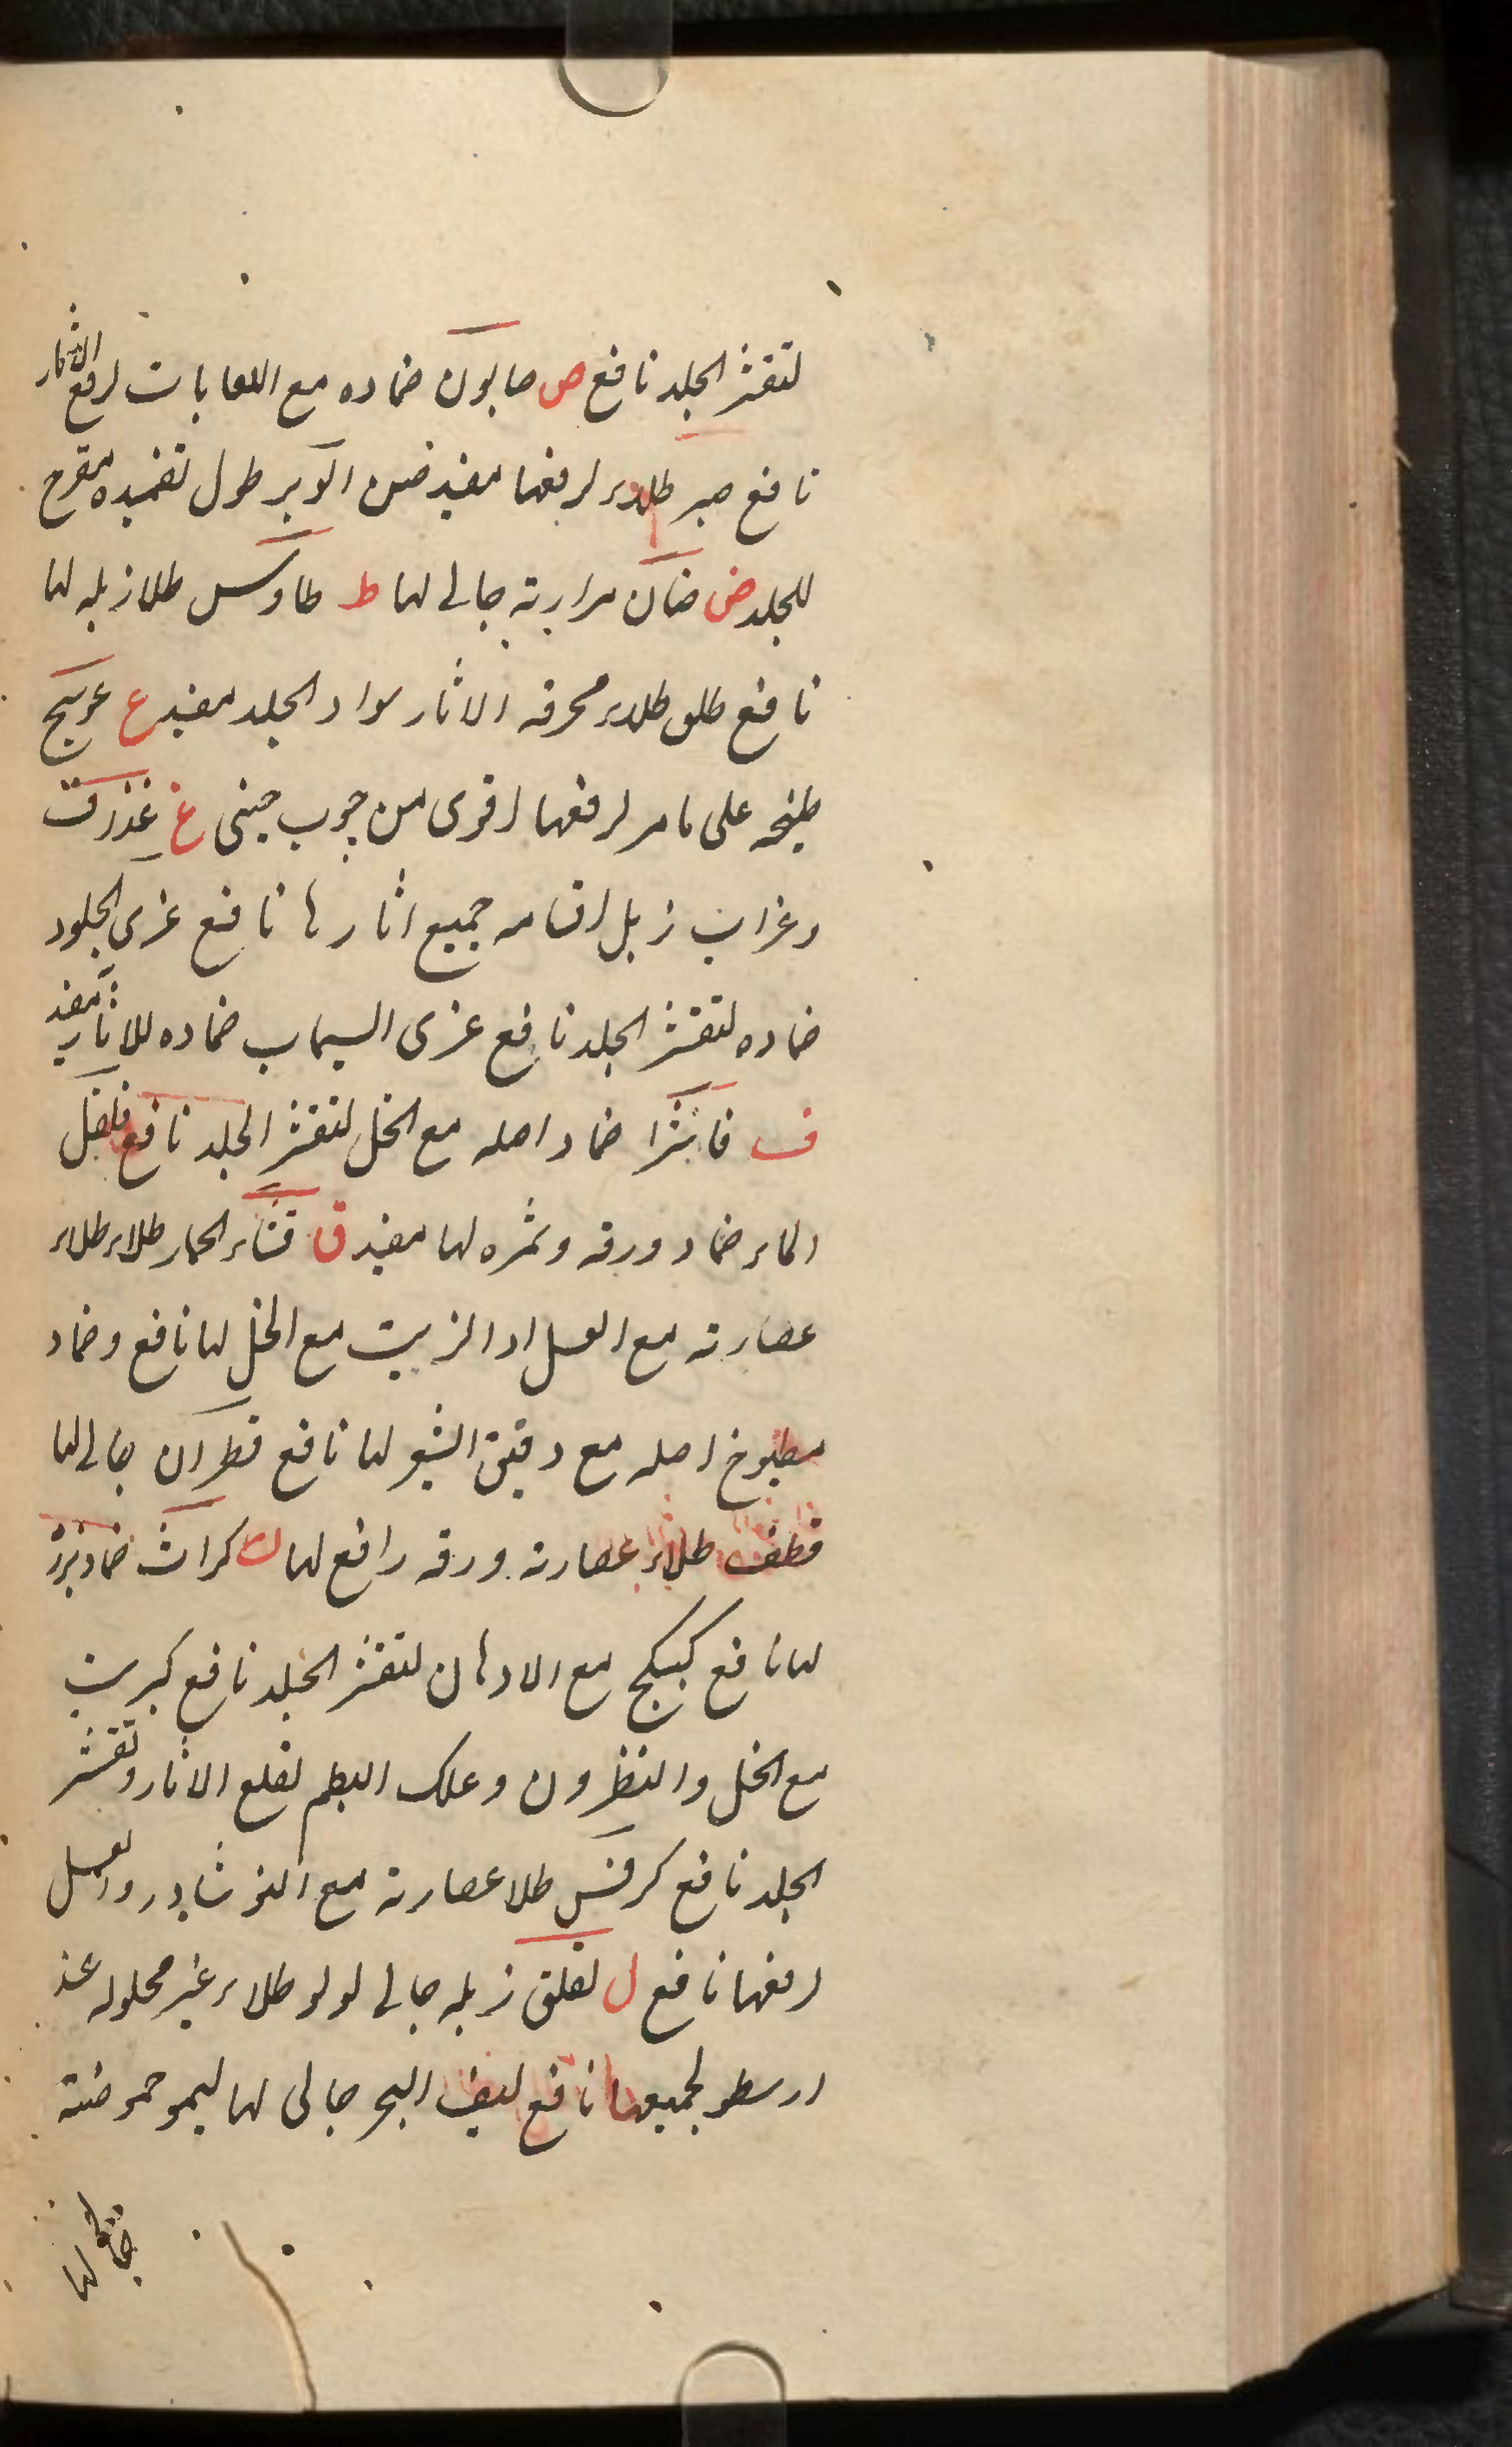 لتقشر الجلد نافع ص صابون ضماده مع اللعابات لرفع الاثار
نافع صبر طلاء لرفعها مفيد طول تضميده مقرح
للجلد ض ضان مرارته جالی لها ط طاوس طلا زبله لها
نافع طلق طلاء محرقه الاثار سواد الجلد مفيد ع عوسج
طبیخه علی ما مر لرفعها اقوی من چوب چینی غ
وغراب زبل اقسامه جمیع اثارها نافع غری الجلود
ضماده لتقشر الجلد نافع غری ضماده للاثار مفید
ف فاشرا ضماد اصله مع الخل لتقشر الجلد نافع فلفل
الماء ضماد ورقه وثمره لها مفید ق قثاء الحمار طلاء طلاء
عصارته مع العسل او الزيت مع الخل لها نافع وضماد
مطبوخ اصله مع دقیق الشعیر لها نافع قطران جالی لها
قطف طلاء عصارته ورقه رافع لها ک کراث ضماد بزره
لها نافع کبیکج مع الادهان لتقشر الجلد نافع کبریت
مع الخل والنطرون وعلک البطم لقلع الاثار وتقشر
الجلد نافع کرفس طلا عصارته مع النوشادر والعسل
لرفعها نافع ل لقلق زبله جالی لولو طلاء غیر محلوله عند
ارسطو لجمیعها نافع لیف البحر جالی لها لیمو حموضته
جالی لها